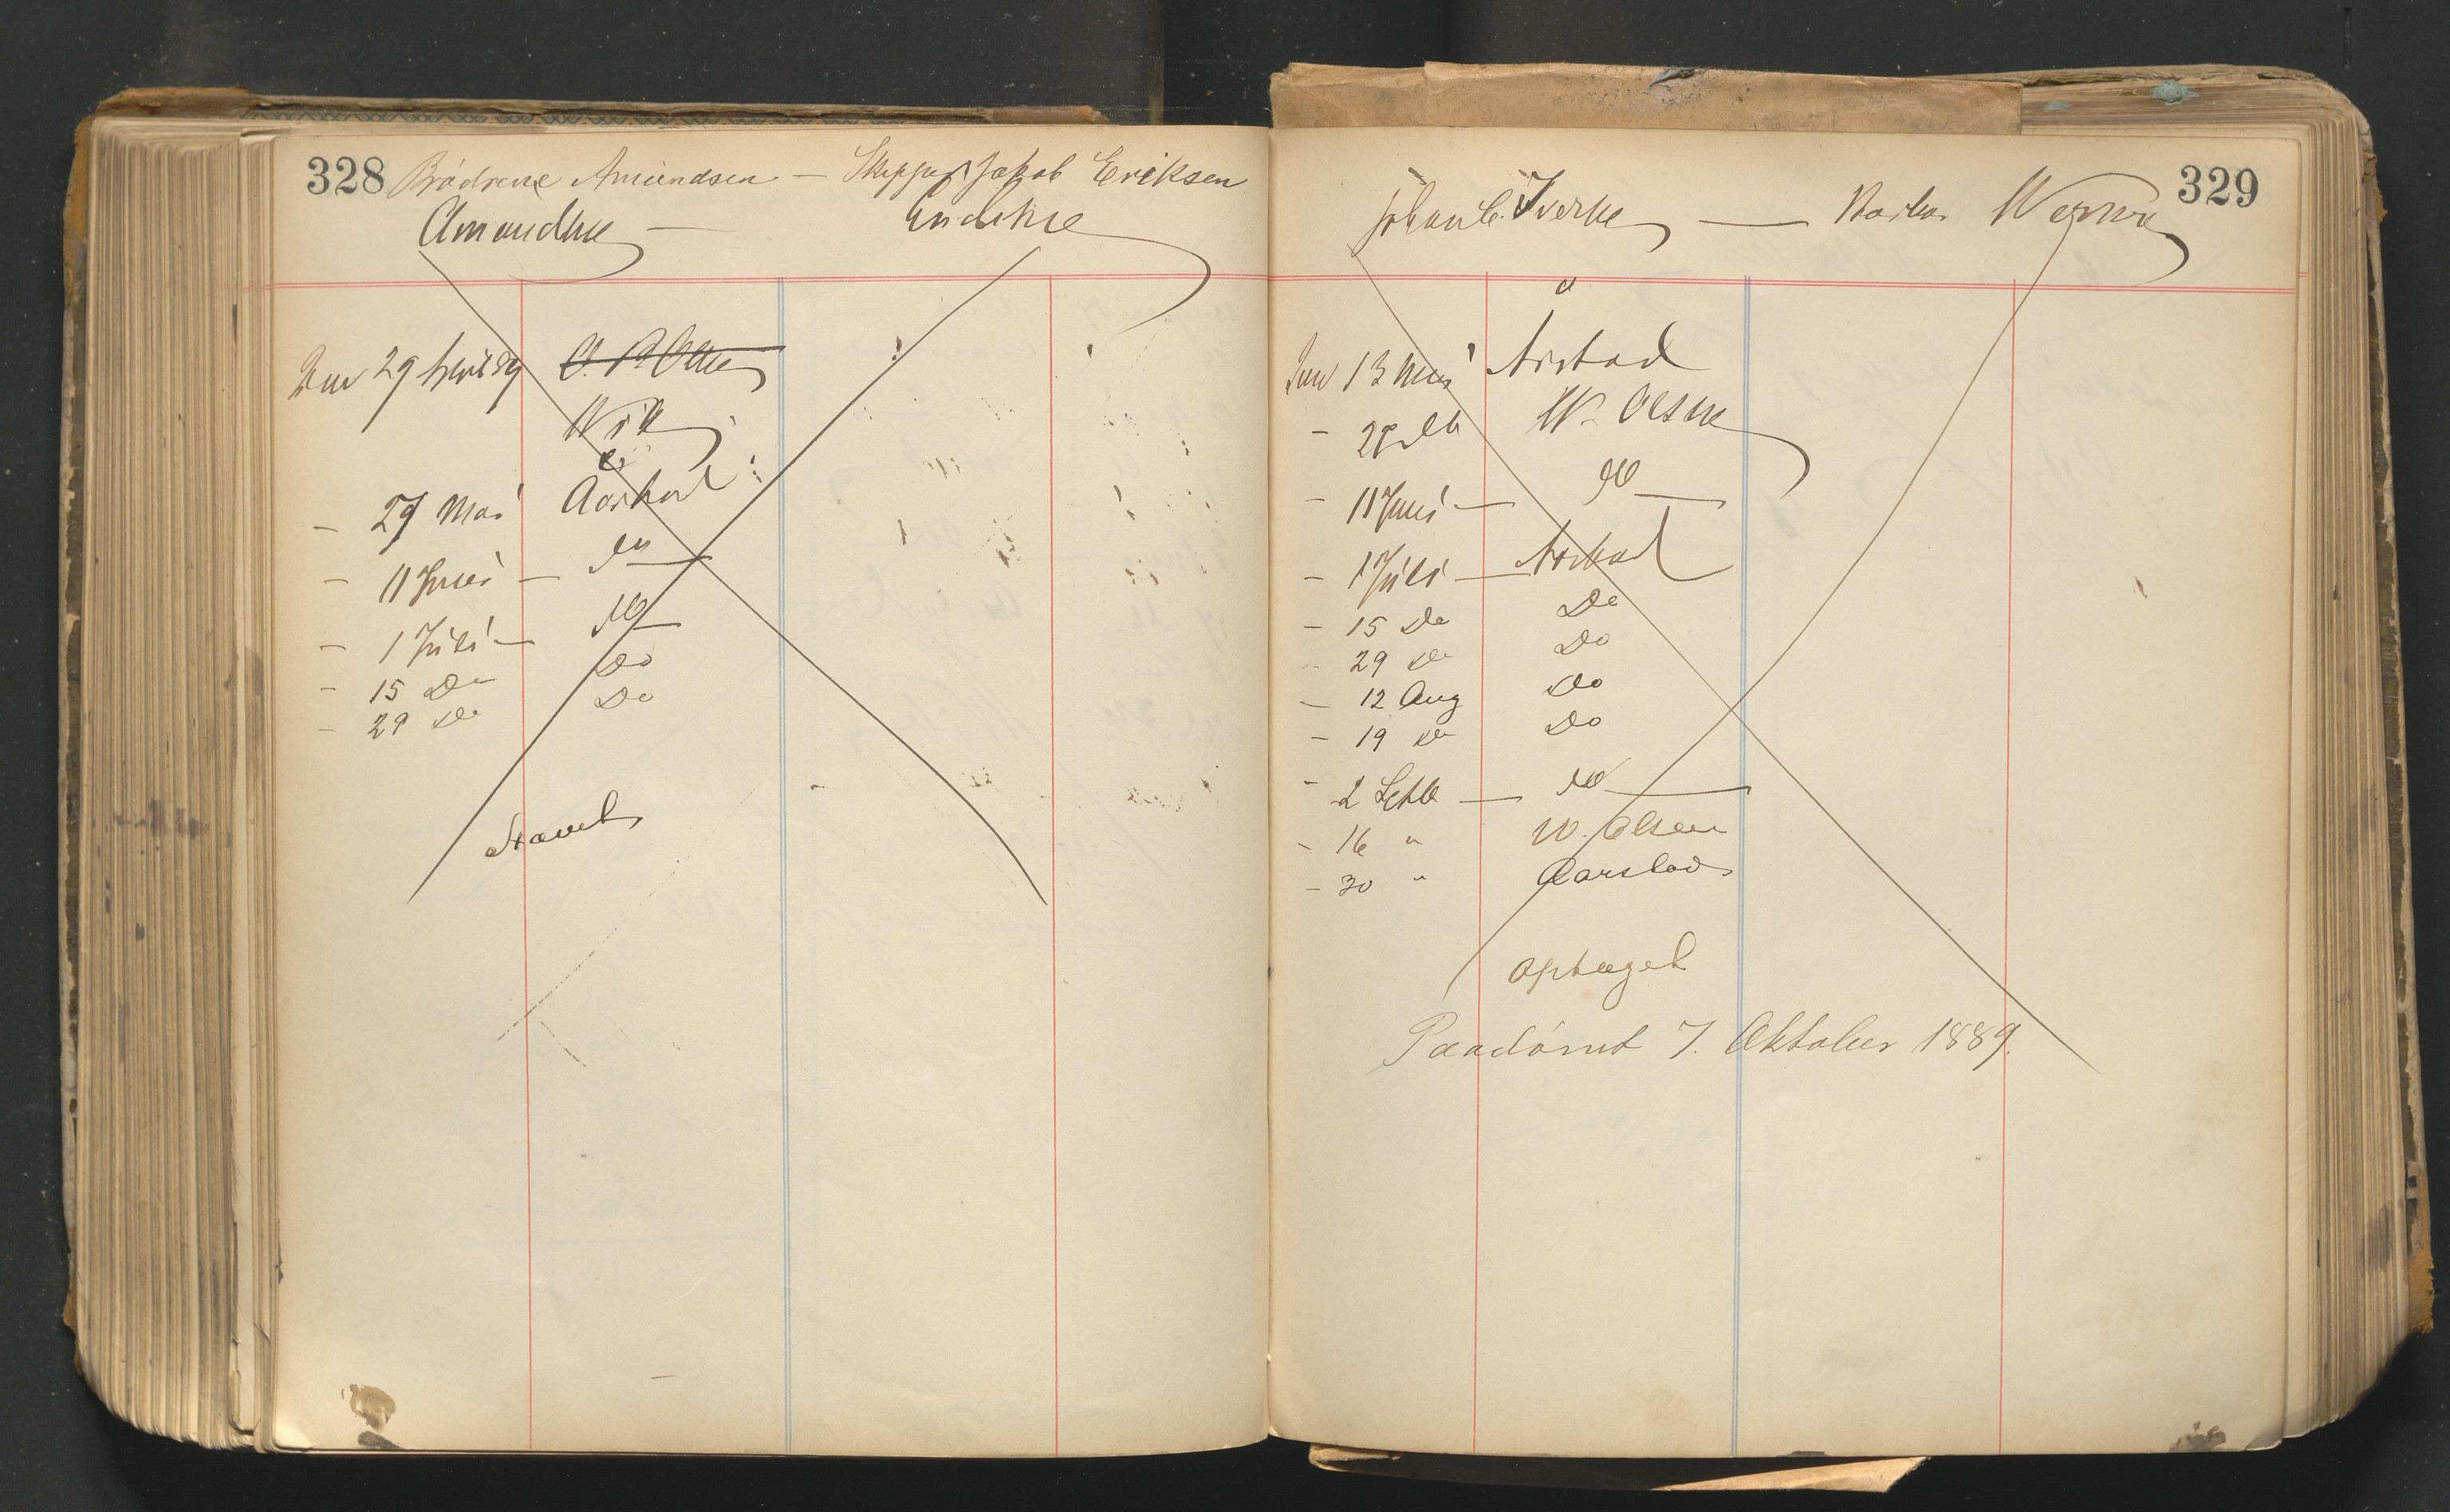 328 Brödrene Amundsen — Skipper Jakob Eriksen
Amundsen —
Den 29 April 89 O. A. Olsen
Wik
- 27 Mai Aarstad
- 11 Juni — do —
- 1 Juli — do —
- 15 Do Do
- 29 Do Do
Hævet
329
Johan C. Iversen — Werner
Den 13 Mai Arstad
- 28 do W. Olsen
- 11 Juni — do —
- 1 Juli — Arstad
- 15 Do Do
- 29 Do Do
- 12 Aug Do
- 19 Do Do
- 2 Septb — do —
- 16 " W. Olsen
- 30 " Aarstad
optaget
Paadömt 7. Oktober 1889.